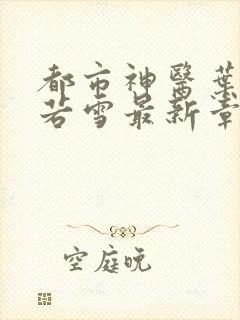 都市神醫葉
若雪最新章
空庭晚